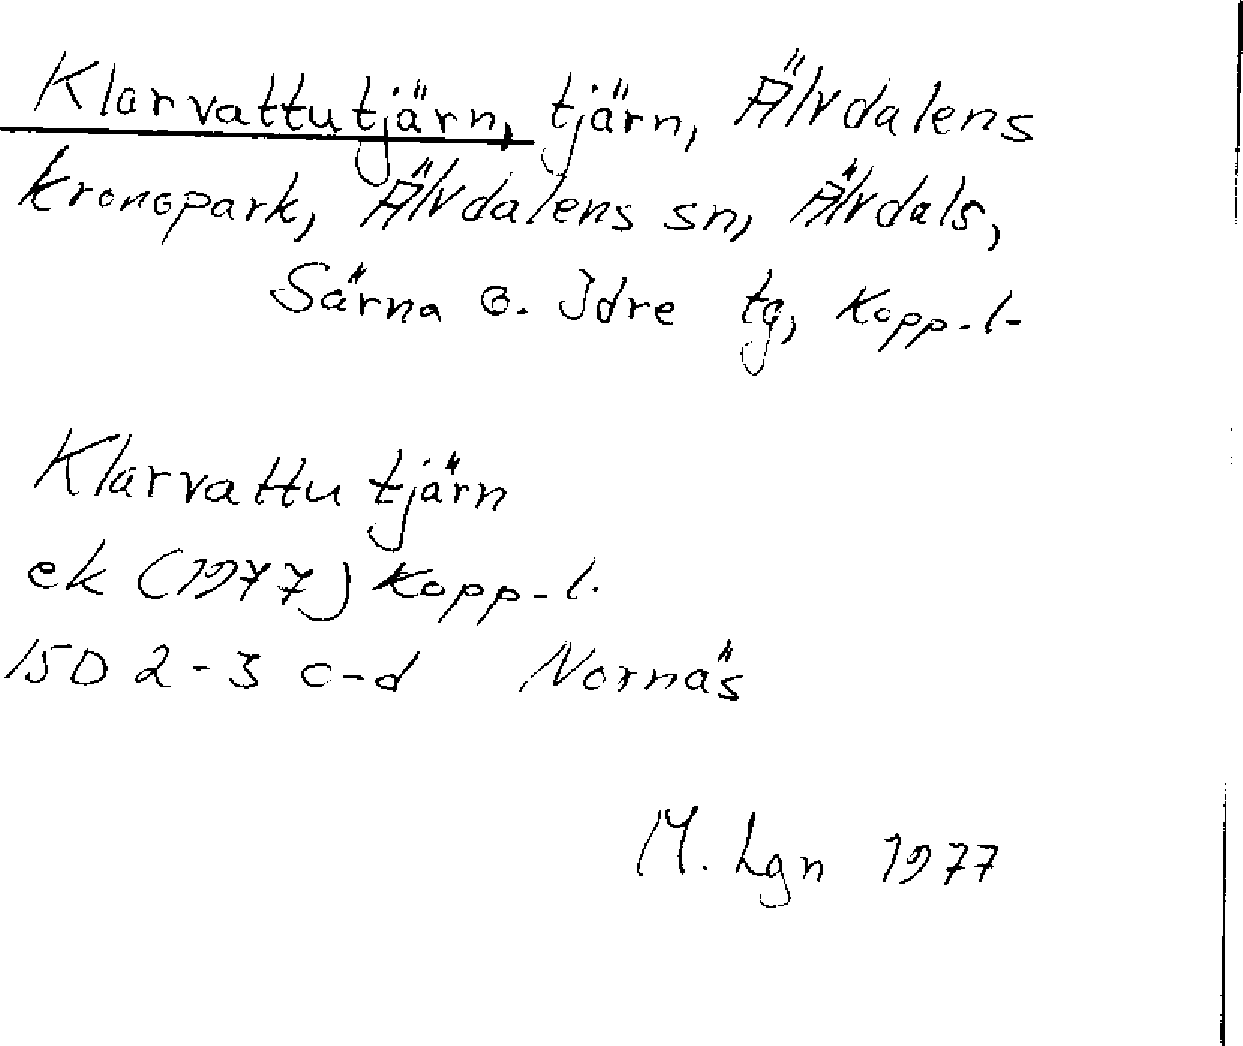 Klarvattutjärn, tjärn, Älvdalens
kronopark, Älvdalens sn, Älvdals,
Särna o. Idre tg, Kopp-l-
Klarvattutjärn
ek (1977) Kopp-l.
15D 2-3 c-d Nornäs
M. Lgn 1977